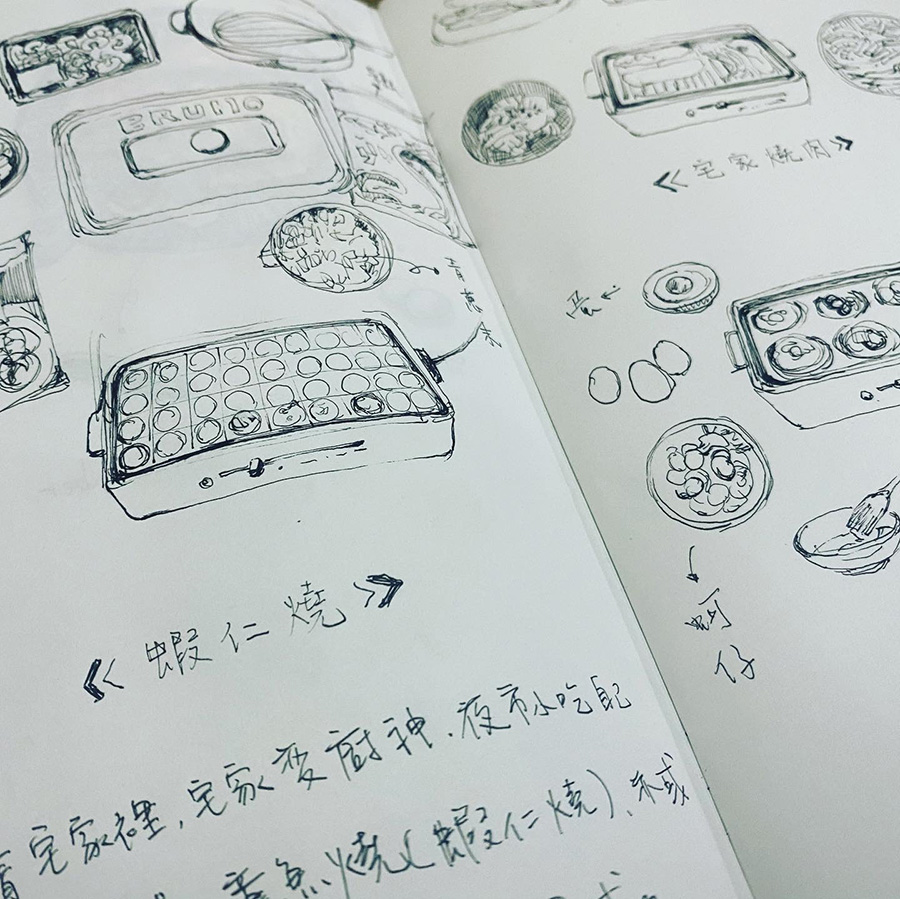 BRUNO
高麗菜
《蝦仁燒》
宅家裡,宅家變廚神.夜市小吃配
章魚燒(蝦仁燒)、
《宅家燒肉》
蛋
蚵仔